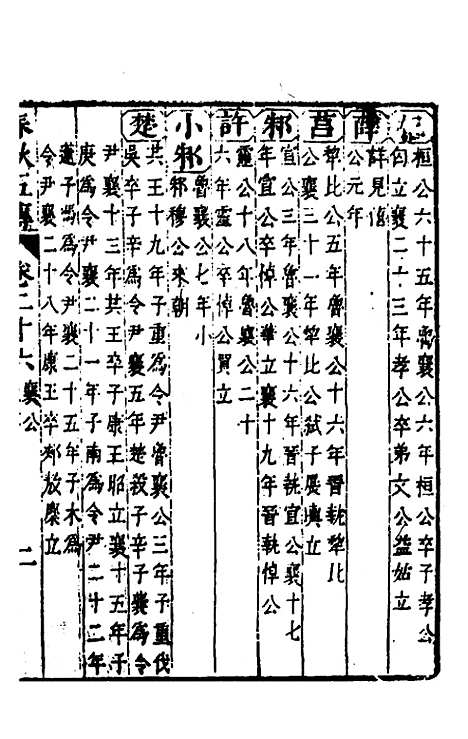 桓公六十五年魯襄公六年桓公卒子孝公
匄立襄二十三年孝公卒弟文公益姑立
薛
詳見僖
公元年
莒
犂比公五年魯襄公十六年晉執犂比
公襄三十一年犂比公弒子展輿立
邾
宣公三年魯襄公十六年晉執宣公襄十七
年宣公卒悼公華立襄十九年晉執悼公
許
靈公十八年魯襄公二十
六年靈公卒悼公買立
小邾
魯襄公七年小
邾穆公來朝
楚
共王十九年子重為令尹魯襄公三年子重伐
吳卒子辛為令尹襄五年楚殺子辛子襄為令
尹襄十三年共王卒子康王昭立襄十五年子
庚為令尹襄二十一年子南為令尹二十二年
薳子馮為令尹襄二十五年子木為
令尹襄二十八年康王卒郟敖麇立
春秋五 卷二十六 襄公 二